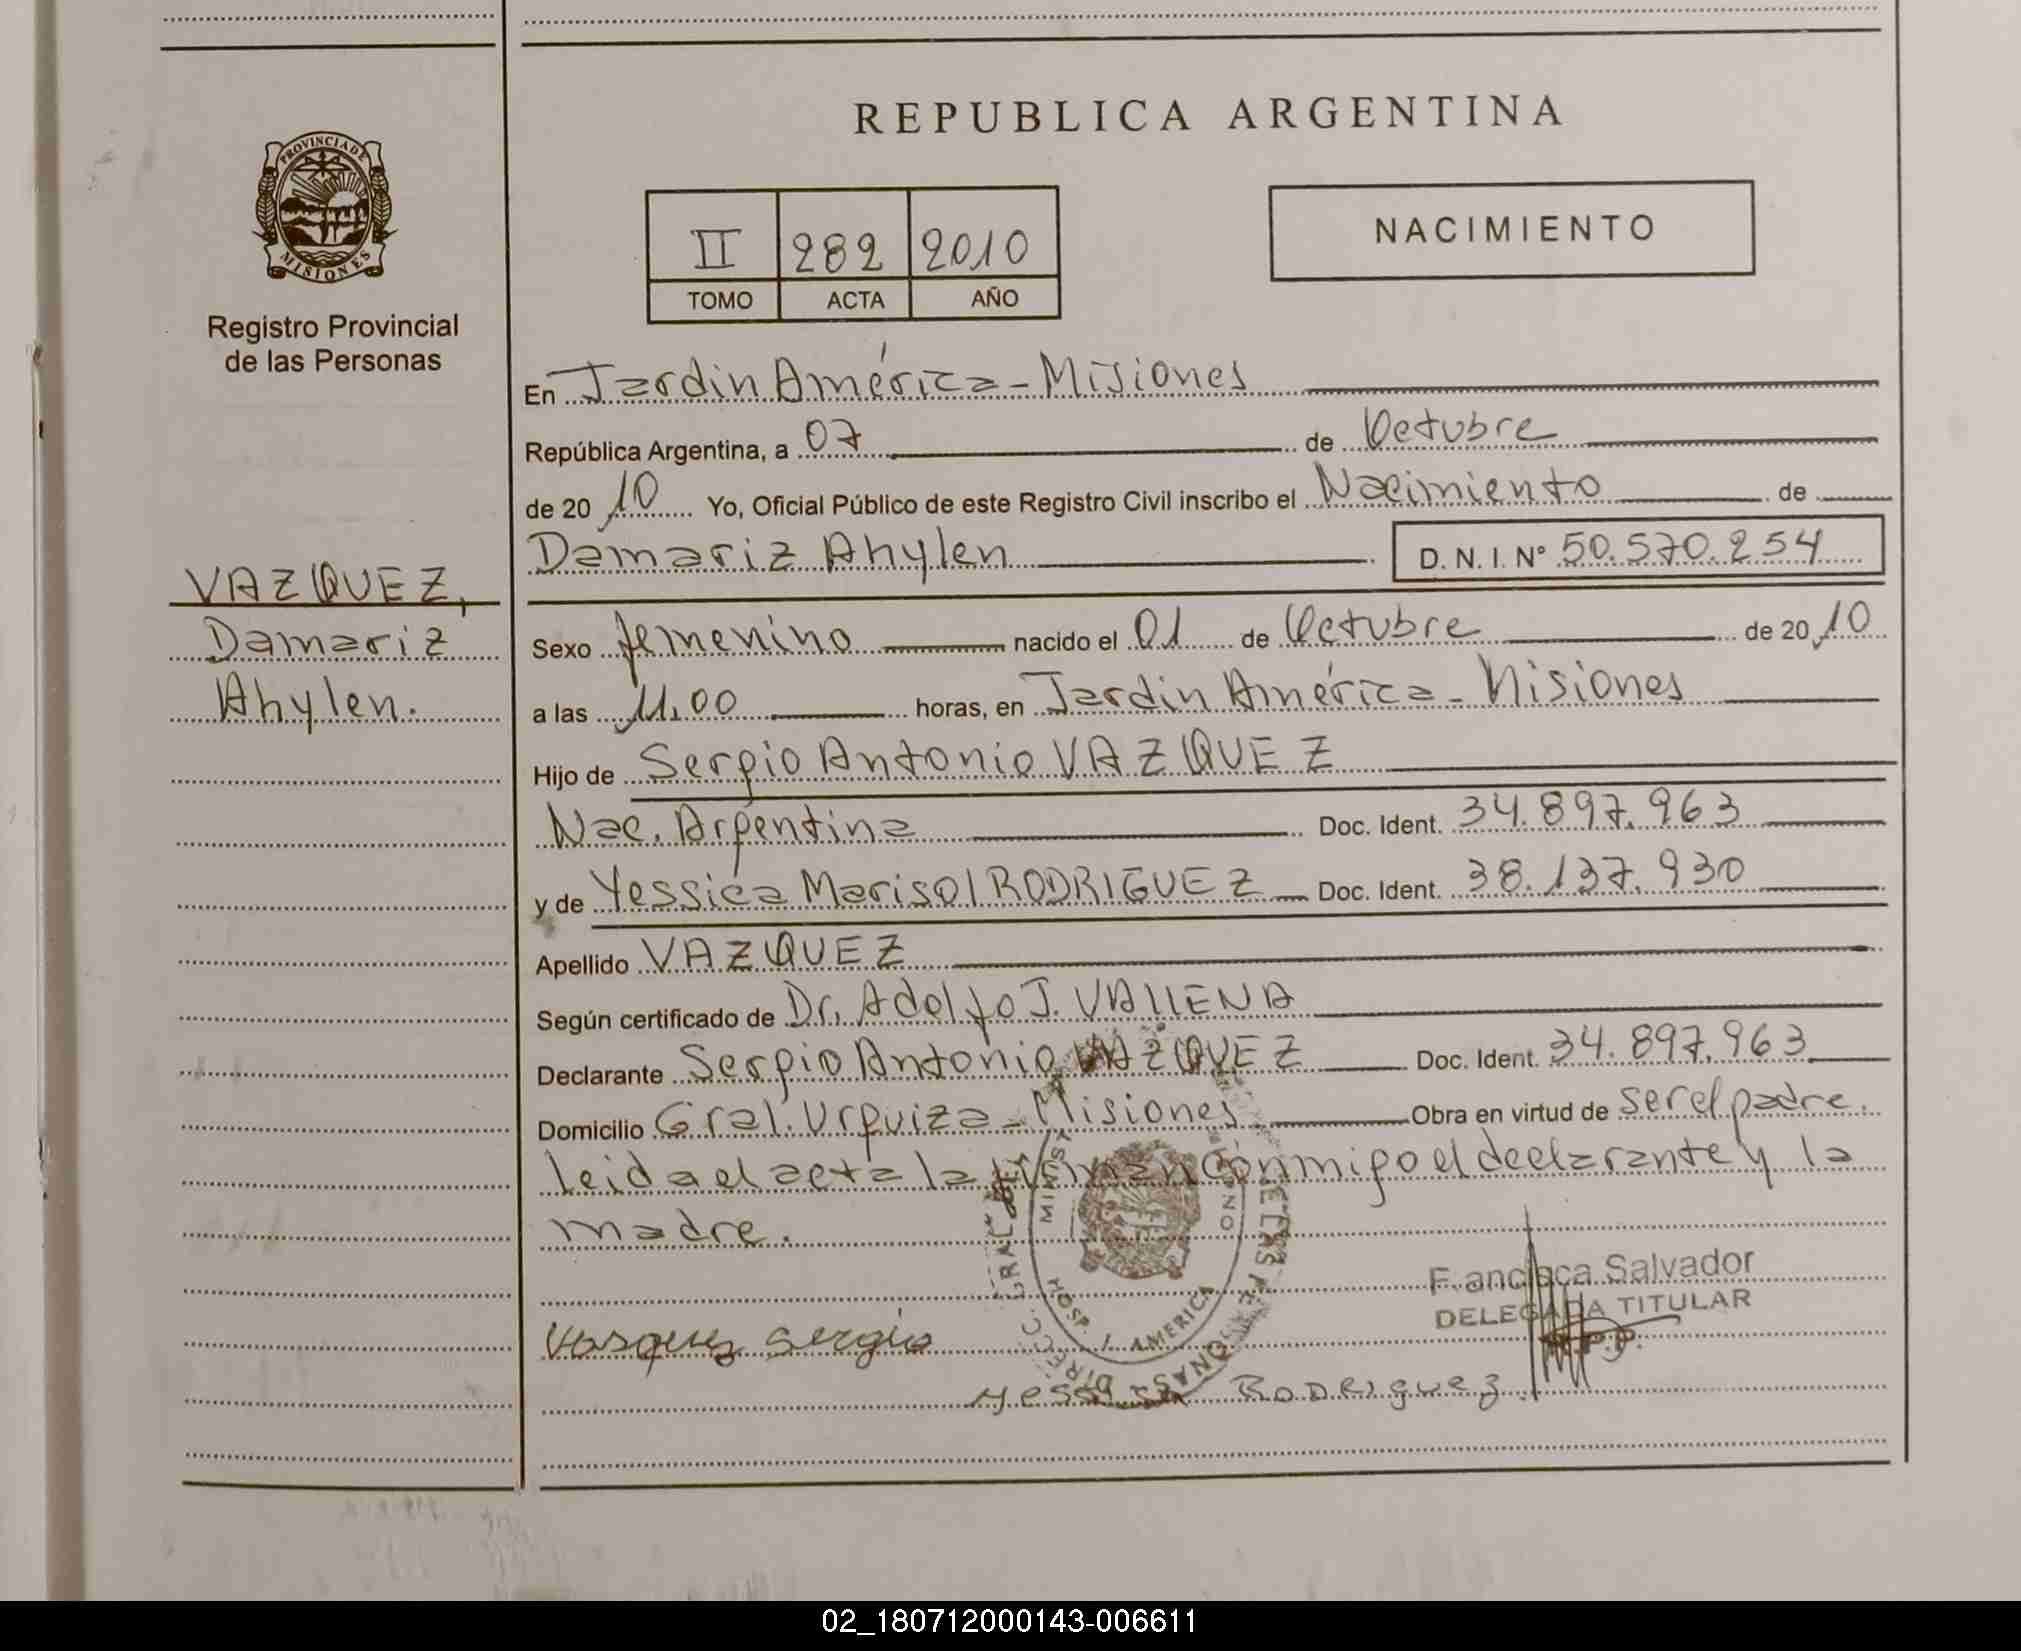 PROVINCIA DE
MISIONES
Registro Provincial
de las Personas
VAZQUEZ,
Damariz
Ahylen.
REPUBLICA ARGENTINA
II 282 2010
TOMO ACTA AÑO
NACIMIENTO
En Jardin América - Misiones
República Argentina, a 07 de Octubre
de 2010 Yo, Oficial Público de este Registro Civil inscribo el Nacimiento de
Damariz Ahylen D. N. I. N° 50.570.254
Sexo femenino nacido el 01 de Octubre de 2010
a las 11,00 horas, en Jardin América - Misiones
Hijo de Sergio Antonio VAZQUEZ
Nac. Argentina Doc. Ident. 34.897.963
y de Yessica Marisol RODRIGUEZ Doc. Ident. 38.137.930
Apellido VAZQUEZ
Según certificado de Dr. Adolfo J. VALLENA
Declarante Sergio Antonio VAZQUEZ Doc. Ident. 34.897.963
Domicilio Gral. Urquiza - Misiones Obra en virtud de ser el padre.
Leida el acta la firman conmigo el declarante y la
madre.
HOSP. J. AMERICA
Francisca Salvador
DELEGADA TITULAR
R.P.P.
Vasquez Sergio
Rodriguez
02_180712000143-006611